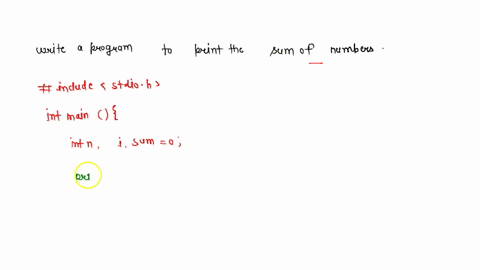 write a program to print the sum of numbers.
# include < stdio.h>
int main () {
int n, i, sum = 0;